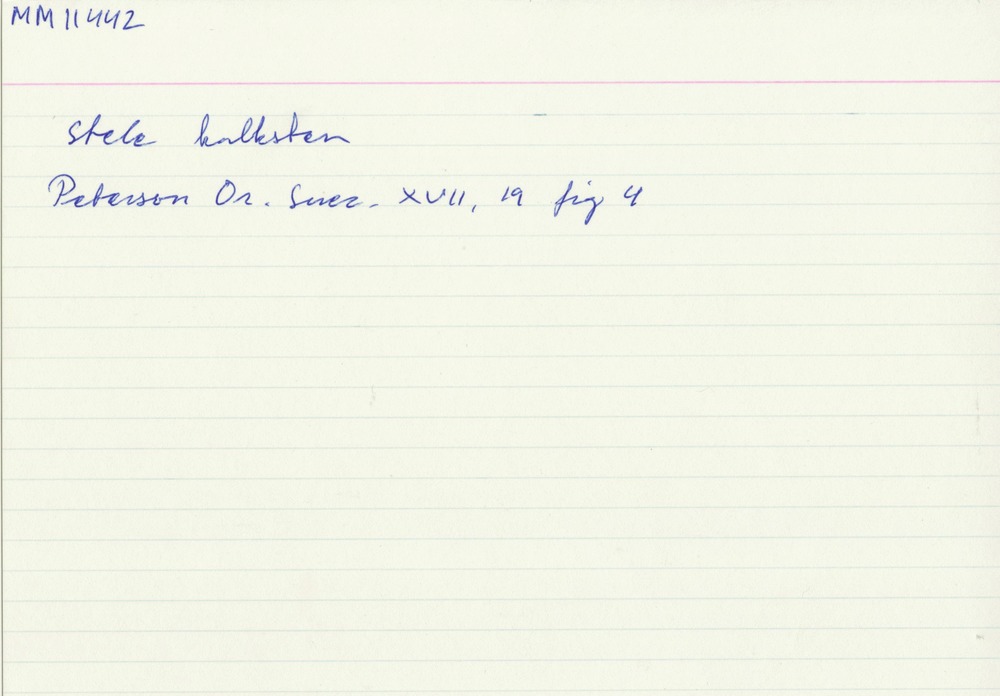 MM11442
Stele kalksten
Peterson Or. Suec. XVII, 19 fig 4